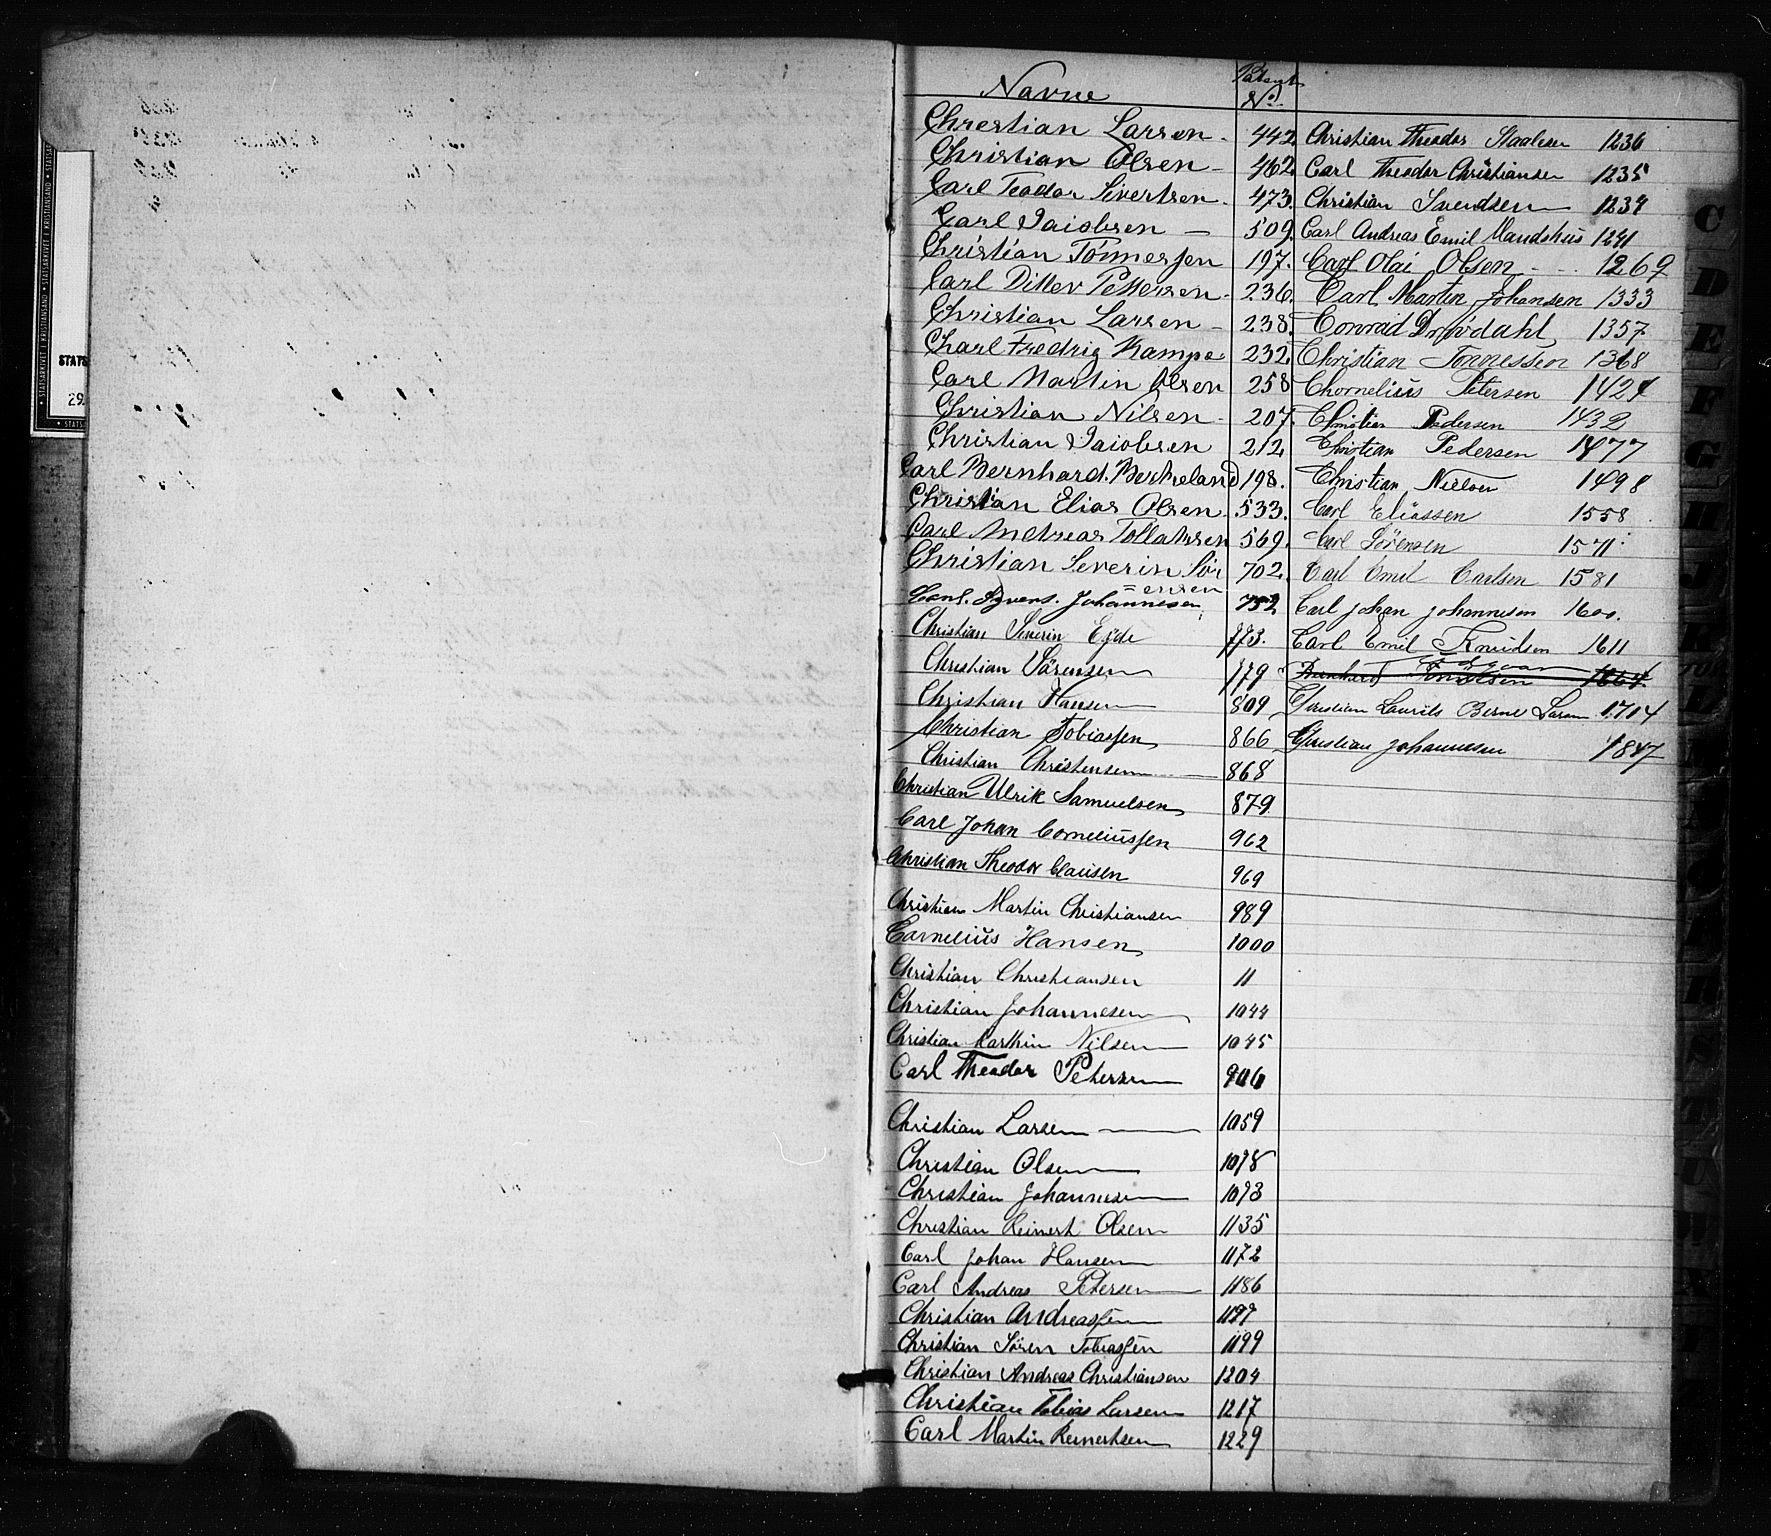 Navne
Patent No
Christian Larsen - 442.
Christian Olsen - 462.
Carl Teodor Sivertsen. 473.
Carl Jaiobsen — 509.
Christian Tönnessen 197.
Carl Ditlev Pettersen. 236.
Christian Larsen - 238.
Charl Fredrig Kampe 232.
Carl Martin Olsen 258
Christian Nilsen - 207.
Christian Jaiobsen 212.
Carl Bernhard. Bertheland 198.
Christian Elias Olsen. 533.
Carl Andreas Tollaksen 569.
Christian Severin Sör 702.
ensen
Carl. Johannesen 752.
Christian Severin Eyde 773.
Christian Sørensen 779
Christian Hansen 809
Christian Tobiassen 866
Christian Christensen 868
Christian Ulrik Samuelsen 879
Carl Johan Corneliussen 962
Christian Theodor Clausen 969
Christian Martin Christiansen 989
Cornelius Hansen 1000
Christian Christiansen 11
Christian Johannesen 1044
Christian Marthin Nilsen 1045
Carl Theodor Petersen 906
Christian Larsen 1059
Christian Olsen 1078
Christian Johannesen 1093
Christian Reinert Olsen 1135
Carl Johan Hansen 1172
Carl Andreas Petersen 1186
Christian Andreassen 1197
Christian Sören Tobiassen 1199
Christian Andreas Christiansen 1204
Christian Tobias Larsen 1217
Carl Martin Reinertsen 1229
Christian Theodor Staalesen 1236
Carl Theodor Christiansen 1235
Christian Svendsen 1234
Carl Andreas Emil Mandshus 1241
Carl Olai Olsen - - - 1269
Carl Martin Johansen 1333
Conrad Drövdahl 1357
Christian Tönnessen 1368
Chornelius Petersen 1424
Christian Pedersen 1432
Christian Pedersen 1477
Christian Nielsen 1498
Carl Eliassen 1558
Carl Sørensen 1571
Carl Emil Carlsen 1581
Carl Johan Johannesen 1600.
Carl Emil Knudsen 1611
1664.
Christian Laurits Berne Larsen 1714
Christian Johannesen 1847
C
D
E
F
G
H
J
STATS
29.
STATSARKIVET I KRISTIANSAND